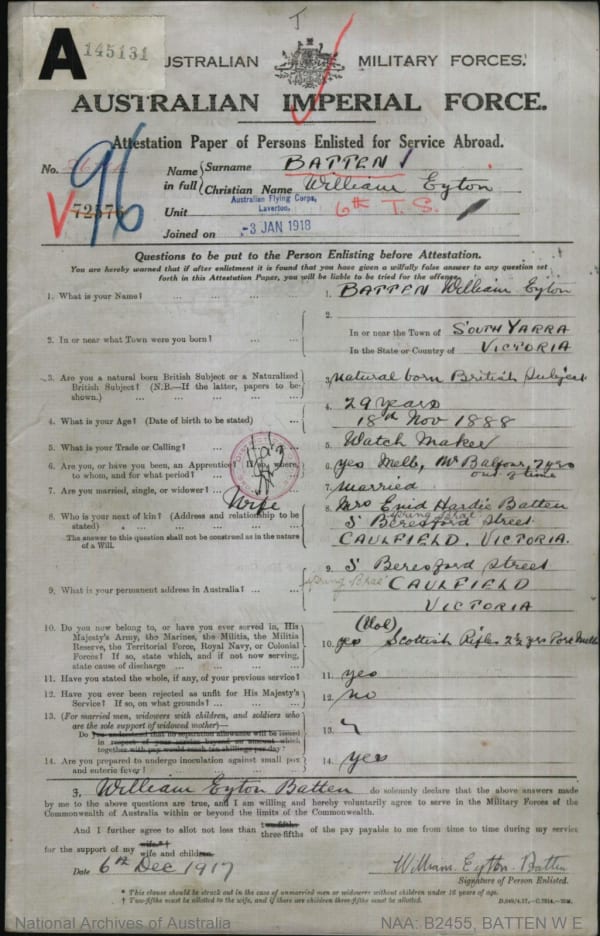 T
A 145131
AUSTRALIAN MILITARY FORCES.
AUSTRALIAN IMPERIAL FORCE.
Attestation Paper of Persons Enlisted for Service Abroad.
No. 96 Name in full Surname BATTEN
Christian Name William Eyton
V 72576 Unit Australian Flying Corps, Laverton. 6th T.S.
Joined on -3 JAN 1918
Questions to be put to the Person Enlisting before Attestation.
You are hereby warned that if after enlistment it is found that you have given a wilfully false answer to any question set
forth in this Attestation Paper, you will be liable to be tried for the offence.
1. What is your Name? ... ... ... ... 1. BATTEN William Eyton
2. In or near what Town were you born? ... ... 2. In or near the Town of SOUTH YARRA
In the State or Country of VICTORIA
3. Are you a natural born British Subject or a Naturalized
British Subject? (N.B.—If the latter, papers to be
shown.) ... ... ... ... 3. Natural born British Subject
4. What is your Age? (Date of birth to be stated) ... 4. 29 years
18th Nov 1888
5. What is your Trade or Calling? ... ... 5. Watch Maker
6. Are you, or have you been, an Apprentice? If so, where,
to whom, and for what period? ... 6. yes Melb, Mr Balfour,
out of time
7. Are you married, single, or widower? ... 7. married
Wife
8. Who is your next of kin? (Address and relationship to be
stated) ... ... ... 8. Mrs Enid Hardie Batten
The answer to this question shall not be construed as in the nature
of a Will.
5 Beresford Street
CAULFIELD. VICTORIA.
9. What is your permanent address in Australia? ... 9. 5 Beresford Street
CAULFIELD
VICTORIA
10. Do you now belong to, or have you ever served in, His
Majesty's Army, the Marines, the Militia, the Militia
Reserve, the Territorial Force, Royal Navy, or Colonial
Forces? If so, state which, and if not now serving,
state cause of discharge ... ... ... 10. yes (Vol) Scottish Rifles 2½ yrs
11. Have you stated the whole, if any, of your previous service? 11. yes
12. Have you ever been rejected as unfit for His Majesty's
Service? If so, on what grounds? ... ... 12. no
13. (For married men, widowers with children, and soldiers who
are the sole support of widowed mother)—
Do you understand that no separation allowance will be issued
in respect of your service beyond an amount which
together with pay would reach ten shillings per day? 13.
14. Are you prepared to undergo inoculation against small pox
and enteric fever? ... ... ... 14. yes
3, William Eyton Batten do solemnly declare that the above answers made
by me to the above questions are true, and I am willing and hereby voluntarily agree to serve in the Military Forces of the
Commonwealth of Australia within or beyond the limits of the Commonwealth.
And I further agree to allot not less than two-fifths three-fifths of the pay payable to me from time to time during my service
for the support of my wife*† wife and children.
Date 6th Dec 1917 William Eyton Batten
Signature of Person Enlisted.
* This clause should be struck out in the case of unmarried men or widowers without children under 16 years of age.
† Two-fifths must be allotted to the wife, and if there are children three-fifths must be allotted.
National Archives of Australia NAA: B2455, BATTEN W E